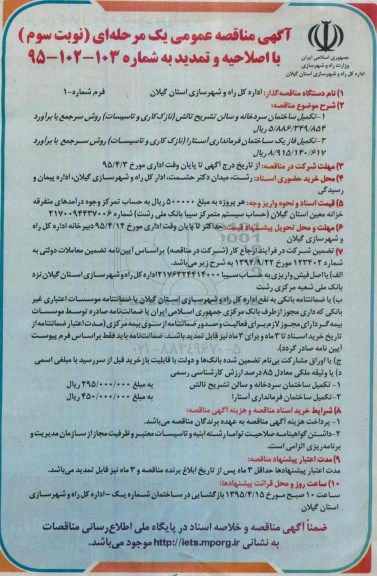 آگهی مناقصه عمومی یک مرحله‌ای (نوبت سوم)
با اصلاحیه و تمدید به شماره ۱۰۳-۱۰۲-۹۵
جمهوری اسلامی ایران
وزارت راه و شهرسازی
اداره کل راه و شهرسازی استان گیلان
۱) نام دستگاه مناقصه‌گذار: اداره کل راه و شهرسازی استان گیلان فرم شماره-۱
۲) شرح موضوع مناقصه:
۱-تکمیل ساختمان سردخانه و سالن تشریح تالش (نازک کاری و تاسیسات) روش سرجمع با برآورد
۵/۸۸۶/۳۴۹/۸۵۴ ریال
۲-تکمیل فاز یک ساختمان فرمانداری آستارا (نازک کاری و تاسیسات) روش سرجمع با برآورد
۸/۹۱۵/۱۴۰/۶۱۷ ریال
۳) مهلت شرکت در مناقصه: از تاریخ درج آگهی تا پایان وقت اداری مورخ ۹۵/۴/۳
۴) محل خرید حضوری اسناد: رشت، میدان دکتر حشمت، اداره کل راه و شهرسازی گیلان، اداره پیمان و
رسیدگی
۵) قیمت اسناد و نحوه واریز وجه: هر پروژه به مبلغ ۵۰۰۰۰۰ ریال به حساب تمرکز وجوه درآمدهای متفرقه
خزانه معین استان گیلان (حساب سیستم متمرکز سیبا بانک ملی رشت) شماره ۲۱۷۰۰۹۴۴۳۷۰۰۶
۶) مهلت و محل تحویل پیشنهاد قیمت: حداکثر تا پایان وقت اداری مورخ ۹۵/۴/۱۴ دبیرخانه اداره کل راه
و شهرسازی گیلان
۷) تضمین شرکت در فرآیند ارجاع کار (شرکت در مناقصه) براساس آیین‌نامه تضمین معاملات دولتی به
شماره ۱۲۳۴۰۲ مورخ ۱۳۹۴/۹/۲۲ به شرح زیر می‌باشد.
الف) یا اصل فیش واریزی به حساب سیبا ۲۱۷۶۳۲۴۴۱۴۰۰۰ اداره کل راه و شهرسازی استان گیلان نزد
بانک ملی شعبه مرکزی رشت
ب) یا ضمانتنامه بانکی به نفع اداره کل راه و شهرسازی استان گیلان یا ضمانتنامه موسسات اعتباری غیر
بانکی که داری مجوز از طرف بانک مرکزی جمهوری اسلامی ایران یا ضمانت‌نامه صادره توسط موسسات
بیمه گر دارای مجوز لازم برای فعالیت و صدور ضمانتنامه از سوی بیمه مرکزی (مدت اعتبار ضمانتنامه از
تاریخ خرید اسناد تا ۳ ماه و برای ۳ ماه نیز قابل تمدید باشد. ضمانتنامه باید فقط براساس فرم پیوست
آیین نامه صادر گردد).
ج) یا اوراق مشارکت بی‌نام تضمین شده بانک‌ها و دولت با قابلیت بازخرید قبل از سررسید با مبلغی اسمی
د) یا وثیقه ملکی معادل ۸۵ درصد ارزش کارشناسی رسمی
۱-تکمیل ساختمان سردخانه و سالن تشریح تالش به مبلغ ۲۹۵/۰۰۰/۰۰۰ ریال
۲-تکمیل ساختمان فرمانداری آستارا به مبلغ ۴۵۰/۰۰۰/۰۰۰ ریال
۸) شرایط خرید اسناد مناقصه و هزینه آگهی مناقصه:
۱- پرداخت هزینه آگهی مناقصه به عهده برندگان مناقصه می‌باشد.
۲-داشتن گواهینامه صلاحیت توأماً رشته ابنیه و تاسیسات معتبر و ظرفیت مجاز از سازمان مدیریت و
برنامه‌ریزی الزامی است.
۹) مدت اعتبار پیشنهاد مناقصه:
مدت اعتبار پیشنهادها حداقل ۳ ماه پس از تاریخ ابلاغ برنده مناقصه و ۳ ماه نیز قابل تمدید می‌باشد.
۱۰) ساعت و روز و محل قرائت پیشنهادها:
ساعت ۱۰ صبح مورخ ۱۳۹۵/۴/۱۵ بازگشایی در ساختمان شماره یک - اداره کل راه و شهرسازی
استان گیلان
ضمناً آگهی مناقصه و خلاصه اسناد در پایگاه ملی اطلاع‌رسانی مناقصات
به نشانی http://iets.mporg.ir موجود می‌باشد.